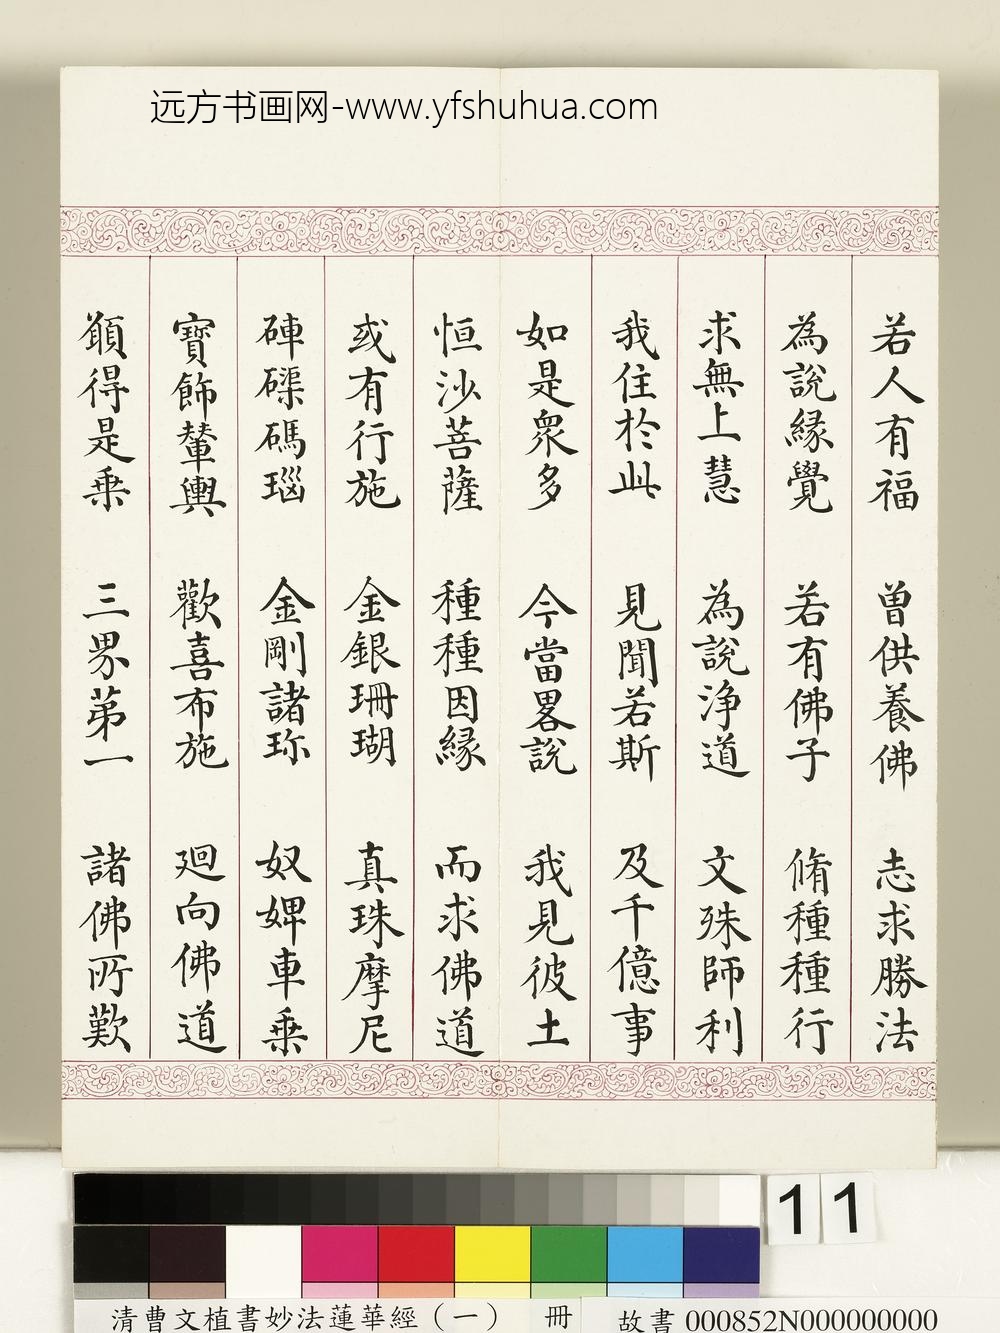 远方书画网-www.yfshuhua.com
若人有福 曽供養佛 志求勝法
為說縁覺 若有佛子 脩種種行
求無上慧 為說浄道 文殊師利
我住於此 見聞若斯 及千億事
如是衆多 今當畧說 我見彼土
恒沙菩薩 種種因縁 而求佛道
或有行施 金銀珊瑚 真珠摩尼
硨磲碼瑙 金剛諸珎 奴婢車乗
寶飾輦輿 歡喜布施 廻向佛道
願得是乗 三界第一 諸佛所歎
11
清曹文植書妙法蓮華經（一） 冊 故書000852N000000000